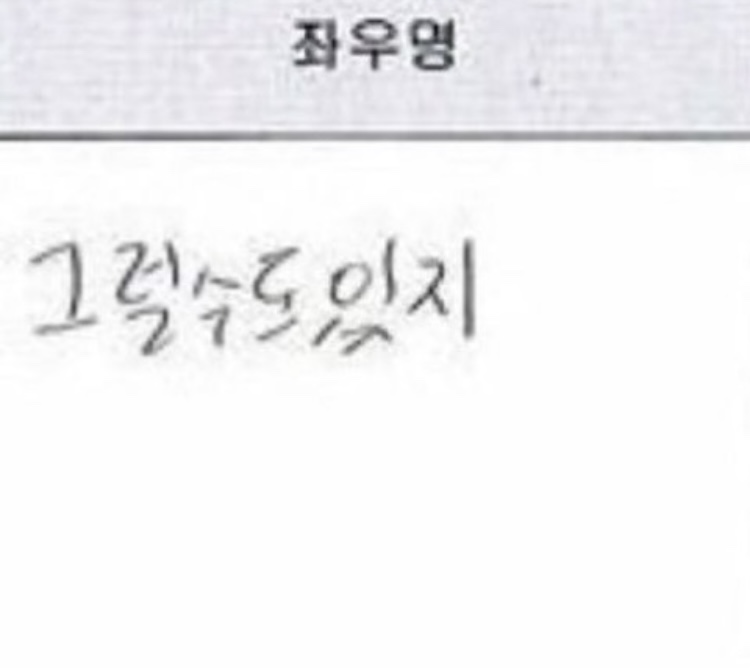 좌우명
그럴수도있지